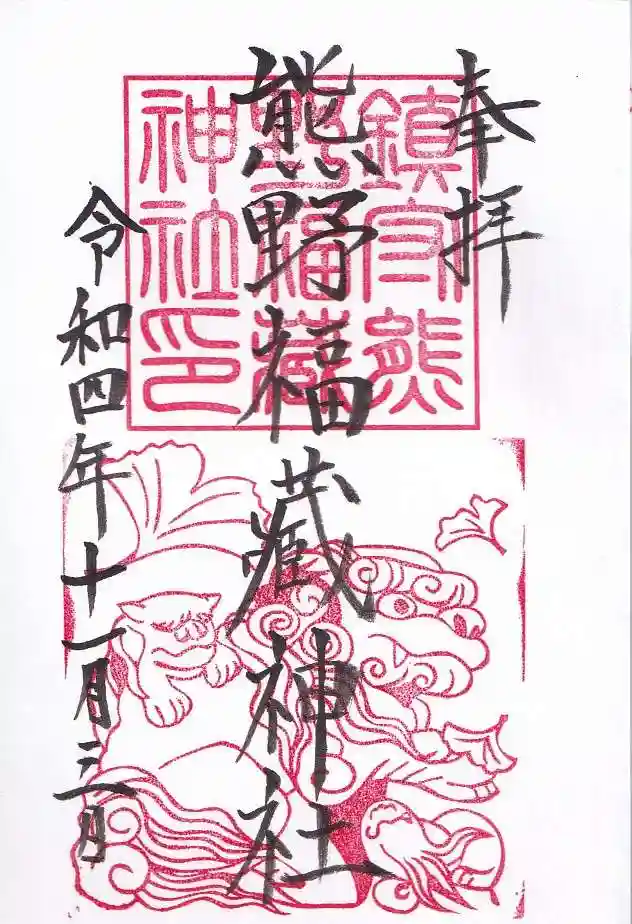 奉拝
熊野福蔵神社
令和四年十一月三日
鎮守熊
野福藏
神社印